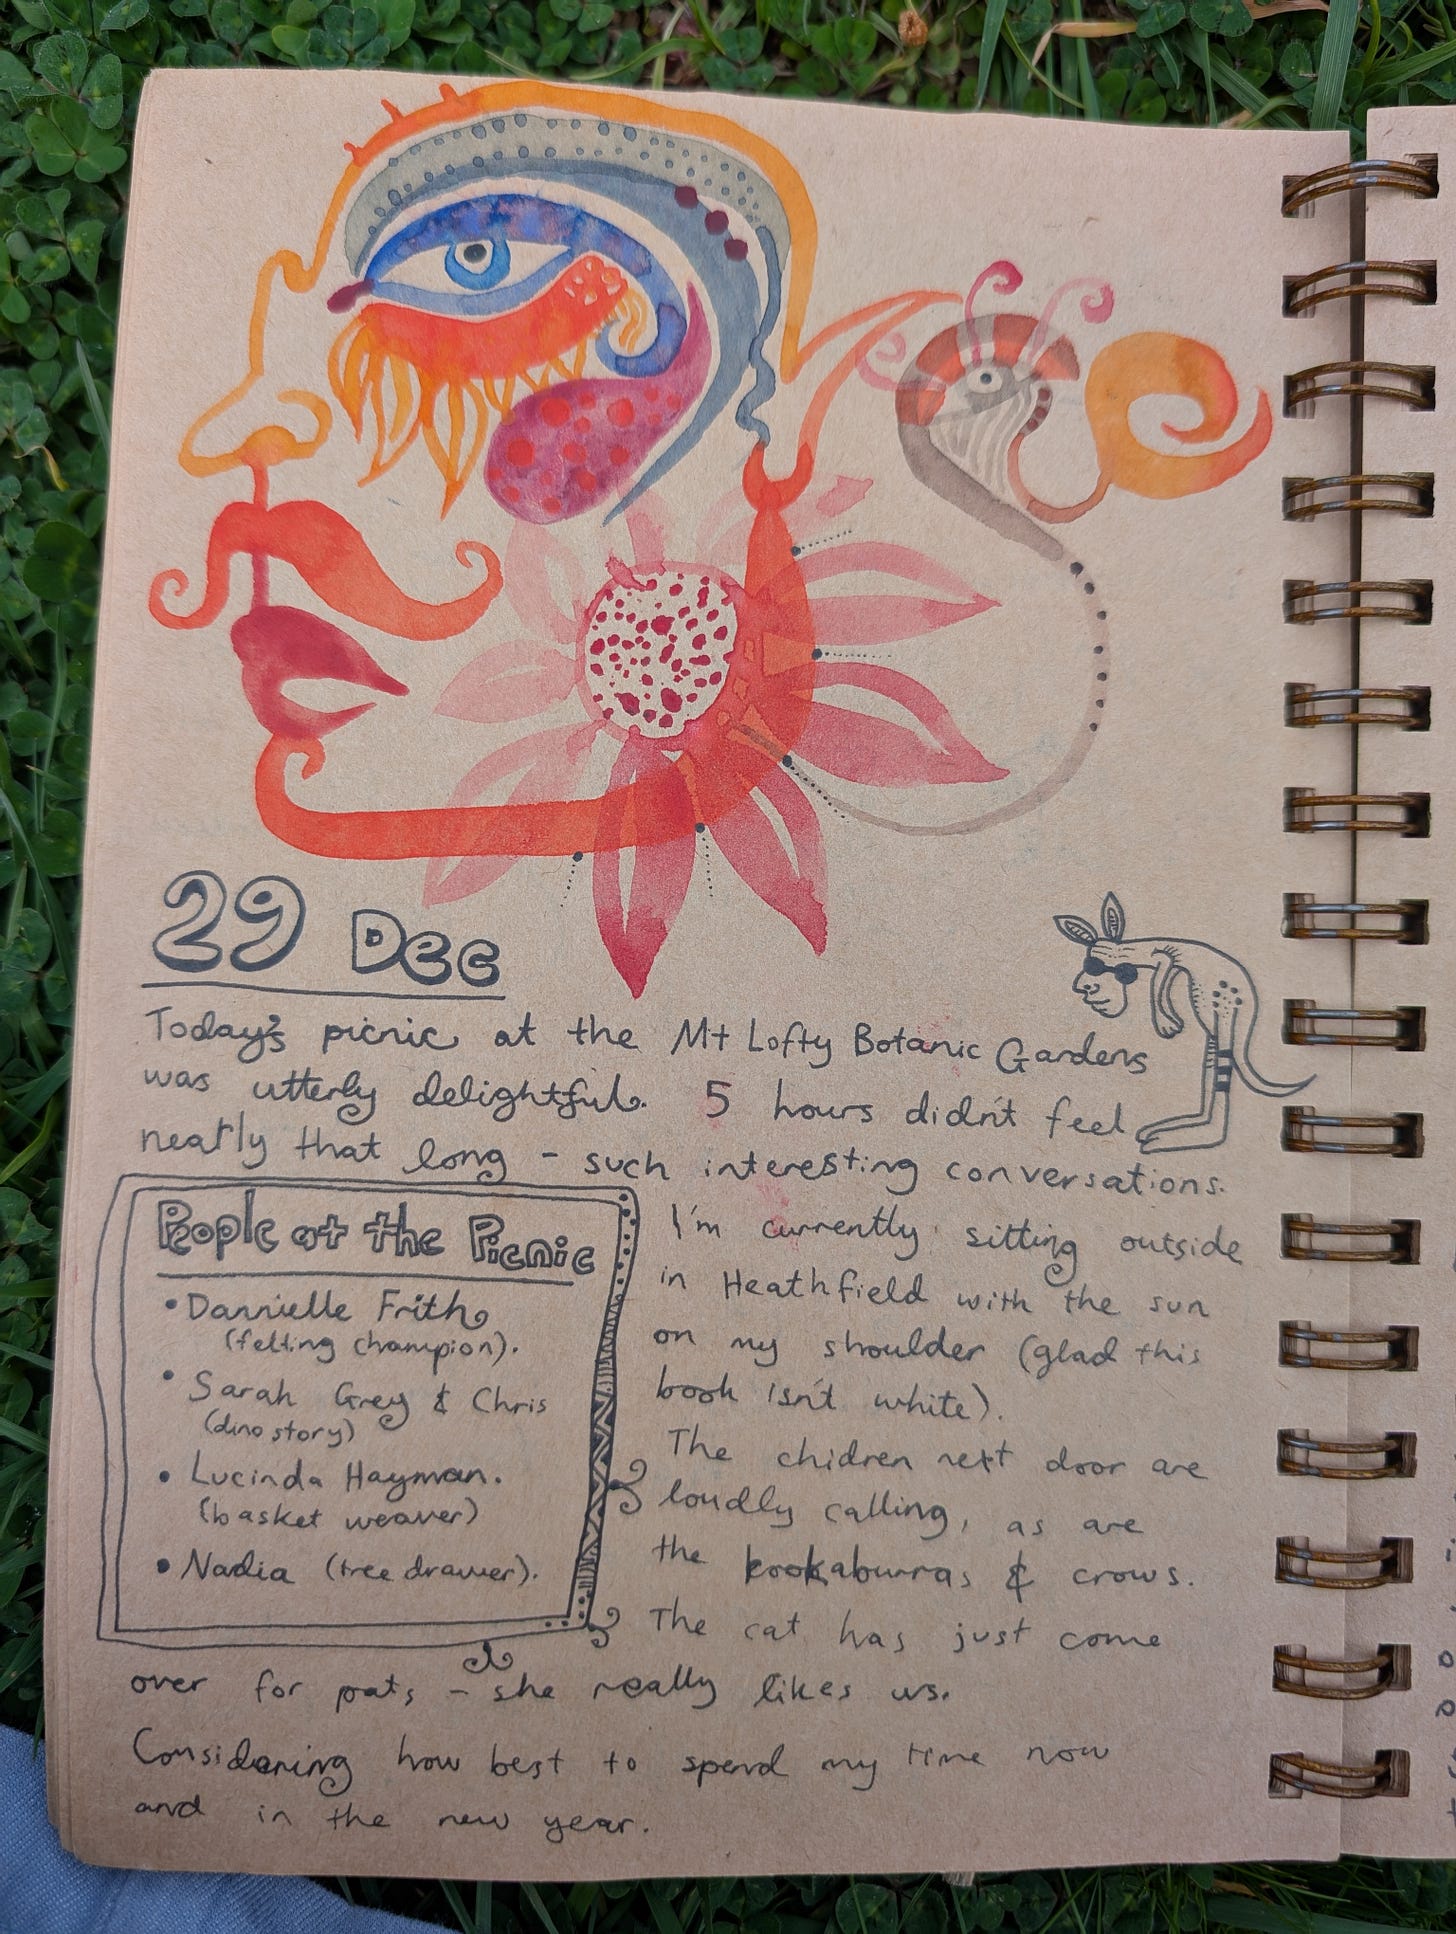 29 Dec
Today's picnic at the Mt Lofty Botanic Gardens
was utterly delightful. 5 hours didn't feel
neatly that long - such interesting conversations.
People at the Picnic
• Dannielle Frith
(felting champion).
• Sarah Grey & Chris
(dino story)
• Lucinda Hayman.
(basket weaver)
• Nadia (tree drawer).
I'm currently sitting outside
in Heathfield with the sun
on my shoulder (glad this
book isn't white).
The chidren next door are
loudly calling, as are
the kookaburras & crows.
The cat has just come
over for pats - she really likes us.
Considering how best to spend my time now
and in the new year.